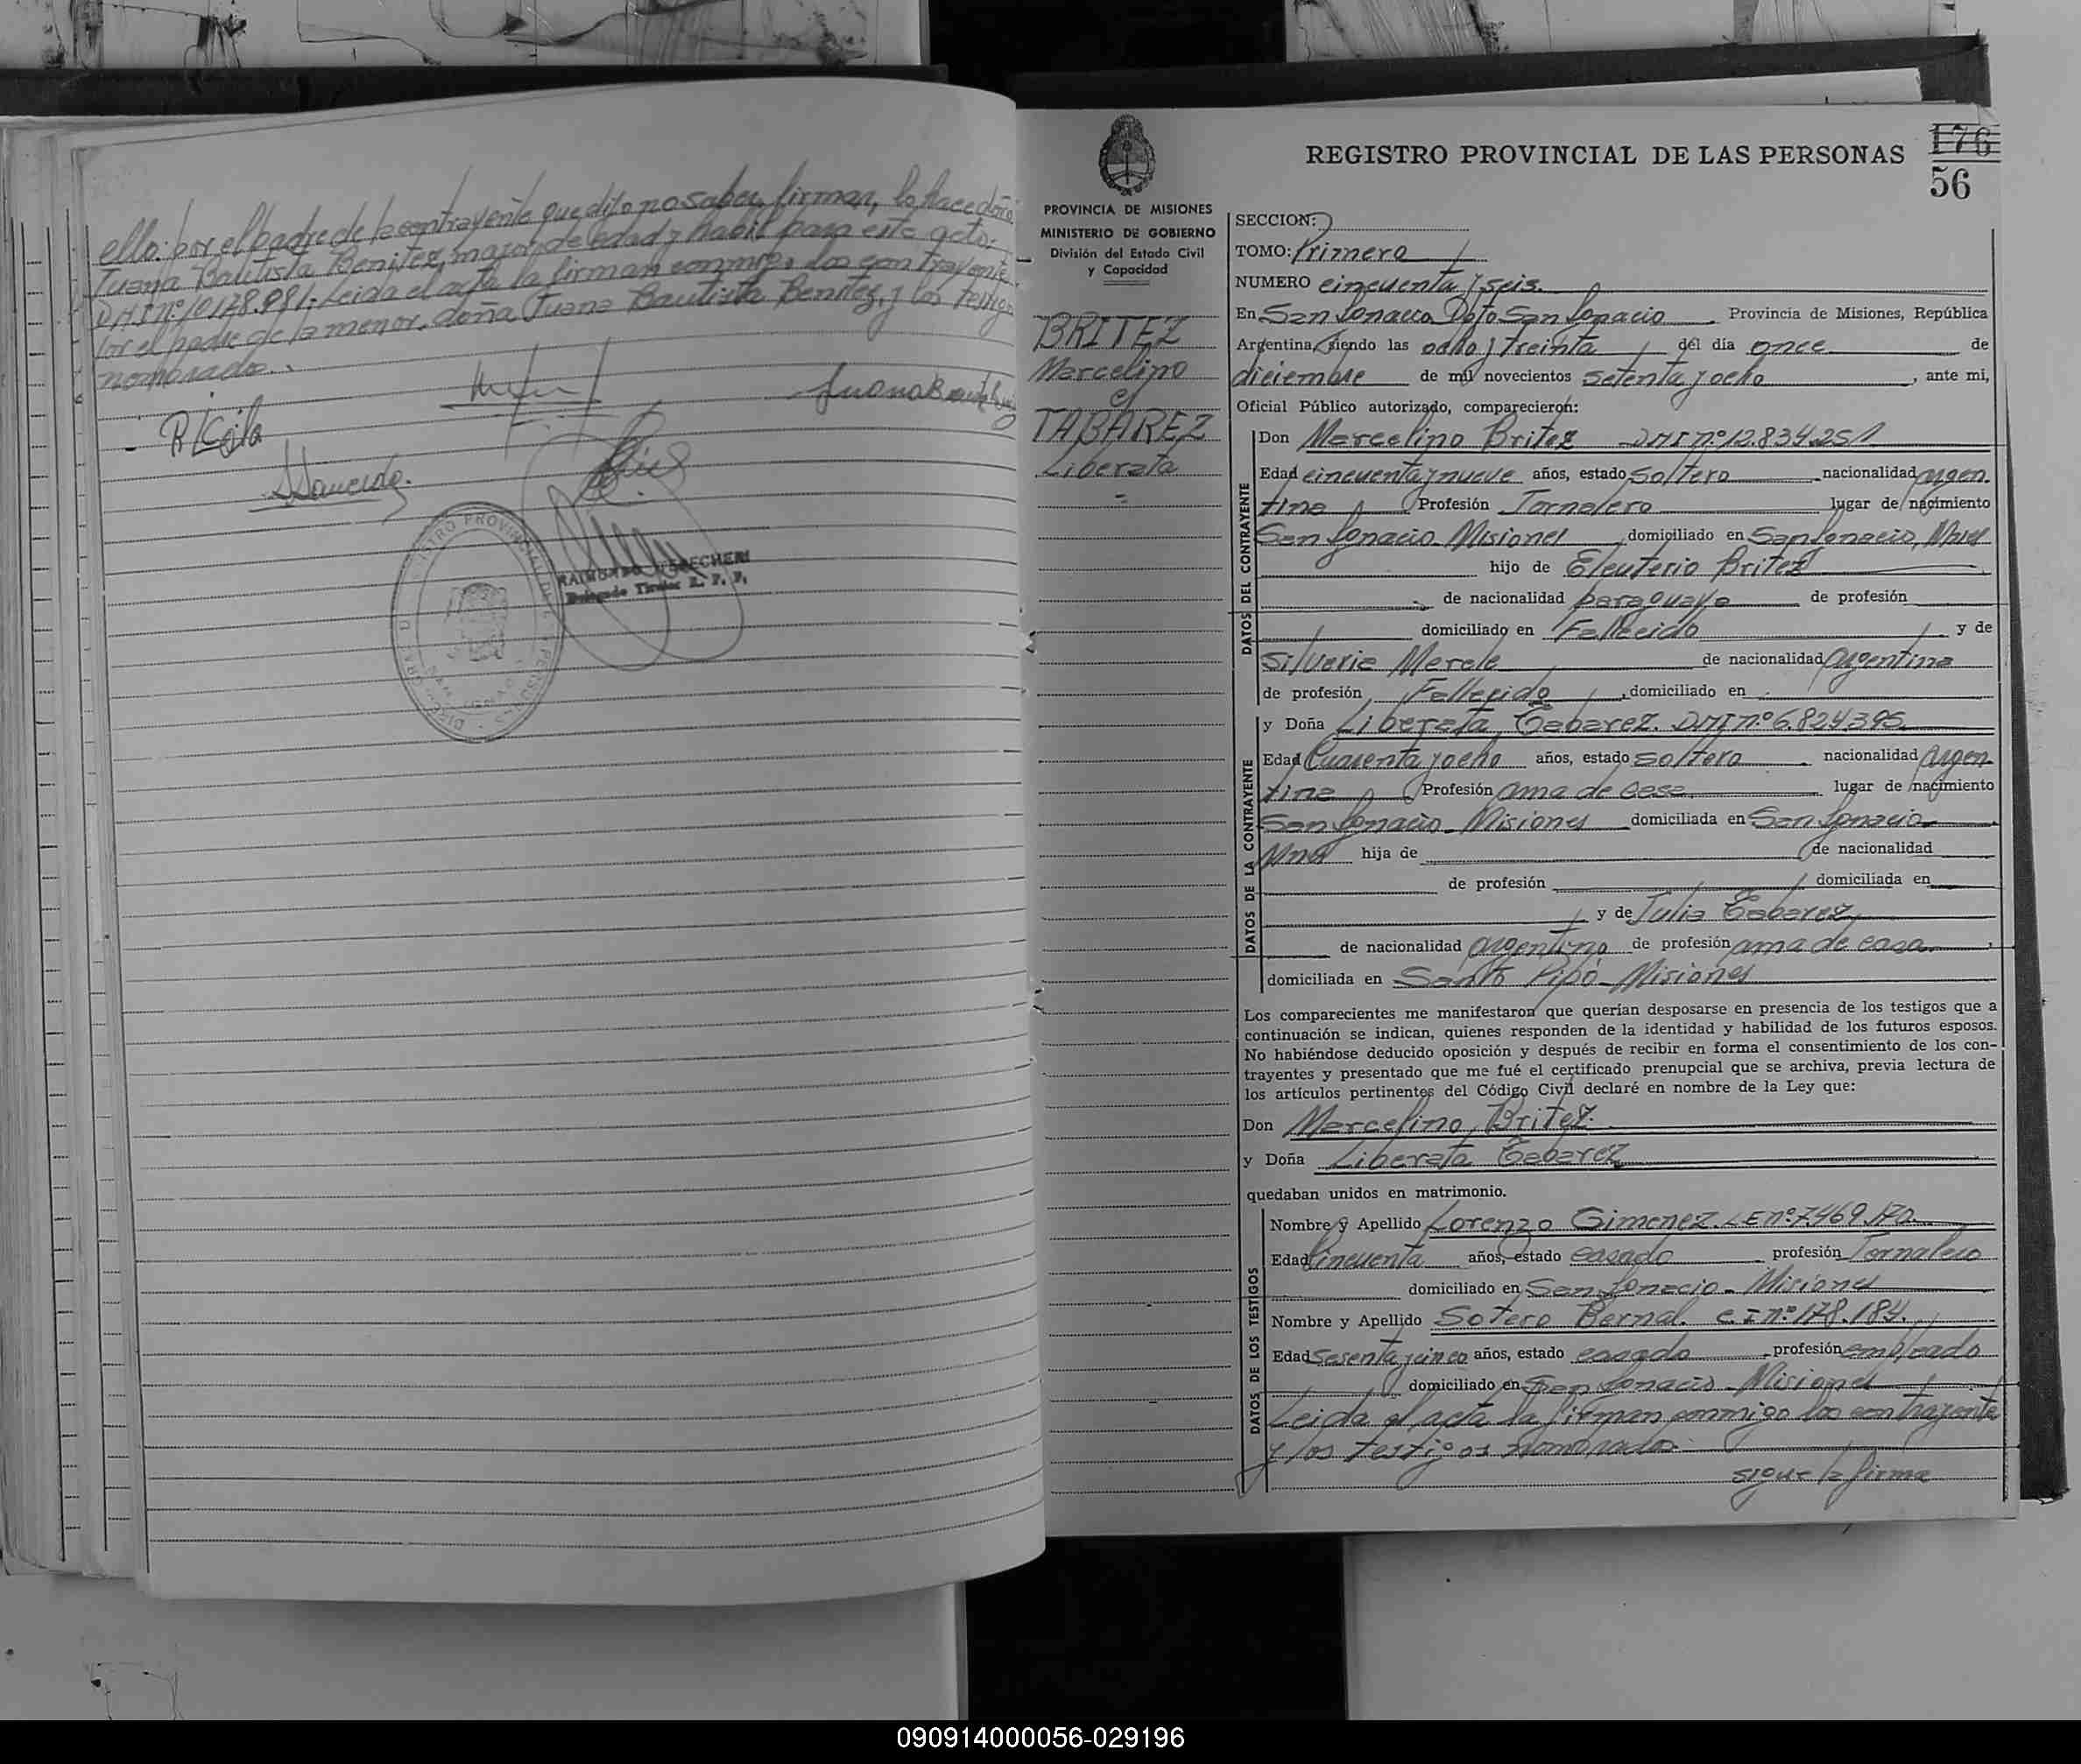 ello: por el padre de la contrayente que dijo no saber firmar, lo hace doña
Juana Bautista Benitez, mayor de edad y habil para este acto.
DNI nº 10178.981. Leida el acta la firman conmigo los contrayente
por el padre de la menor, doña Juana Bautista Benitez, y los testigo
nombrados.
REGISTRO PROVINCIAL DE LAS PERSONAS
176
56
PROVINCIA DE MISIONES
MINISTERIO DE GOBIERNO
División del Estado Civil
y Capacidad
BRITEZ
Marcelino
c/
TABAREZ
Liberata
SECCION:
TOMO: Primero
NUMERO cincuenta y seis.
En San Ignacio Dpto San Ignacio Provincia de Misiones, República
Argentina, siendo las ocho y treinta del día once de
diciembre de mil novecientos setenta y ocho, ante mi,
Oficial Público autorizado, comparecieron:
DATOS DEL CONTRAYENTE
Don Marcelino Britez DNI nº 12.834.251
Edad cincuenta y nueve años, estado soltero nacionalidad argen
tina Profesión Jornalero lugar de nacimiento
San Ignacio Misiones domiciliado en San Ignacio, Mnes
hijo de Eleuterio Britez
de nacionalidad paraguaya de profesión
domiciliado en Fallecido y de
Silveria Merele de nacionalidad argentina
de profesión Fallecido, domiciliado en
DATOS DE LA CONTRAYENTE
y Doña Liberata Tabarez. DNI nº 6.824.395
Edad Cuarenta y ocho años, estado soltera nacionalidad argen
tina Profesión ama de casa lugar de nacimiento
San Ignacio Misiones domiciliada en San Ignacio
Mnes hija de de nacionalidad
de profesión domiciliada en
y de Julia Tabarez
de nacionalidad argentina de profesión ama de casa,
domiciliada en Santo Pipó-Misiones
Los comparecientes me manifestaron que querían desposarse en presencia de los testigos que a
continuación se indican, quienes responden de la identidad y habilidad de los futuros esposos.
No habiéndose deducido oposición y después de recibir en forma el consentimiento de los con-
trayentes y presentado que me fué el certificado prenupcial que se archiva, previa lectura de
los artículos pertinentes del Código Civil declaré en nombre de la Ley que:
Don Marcelino Britez.
y Doña Liberata Tabarez
quedaban unidos en matrimonio.
DATOS DE LOS TESTIGOS
Nombre y Apellido Lorenzo Gimenez. LE nº 7.469.170.
Edad Cincuenta años, estado casado profesión Jornalero
domiciliado en San Ignacio-Misiones
Nombre y Apellido Sotero Bernal. C.I nº 178.184.
Edad Sesenta y cinco años, estado casado, profesión empleado
domiciliado en San Ignacio-Misiones
Leida el acta la firman conmigo los contrayente
y los testigos nombrados.
sigue la firma
090914000056-029196